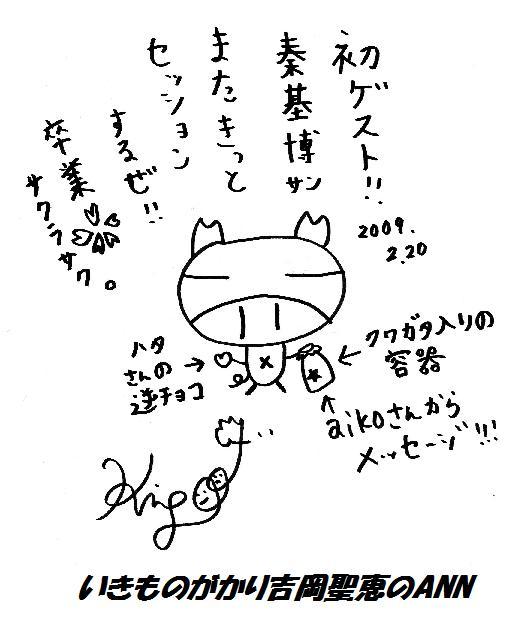 初ゲスト!!
秦基博サン
またきっと
セッション
するぜ!!
卒業
サクラサク。
2009.
2.20
ハタ
さんの
逆チョコ
クワガタ入りの
容器
aikoさんから
メッセージ!!!
King
いきものがかり吉岡聖恵のANN